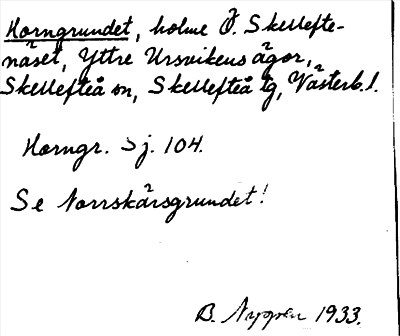 Horngrundet, holme Ö. Skellefte-
näset, Yttre Ursvikens ägor,
Skellefteå sn, Skellefteå tg, Västerb. l.
Horngr. Sj. 104.
Se Norrskärsgrundet!
B. Nygren 1933.